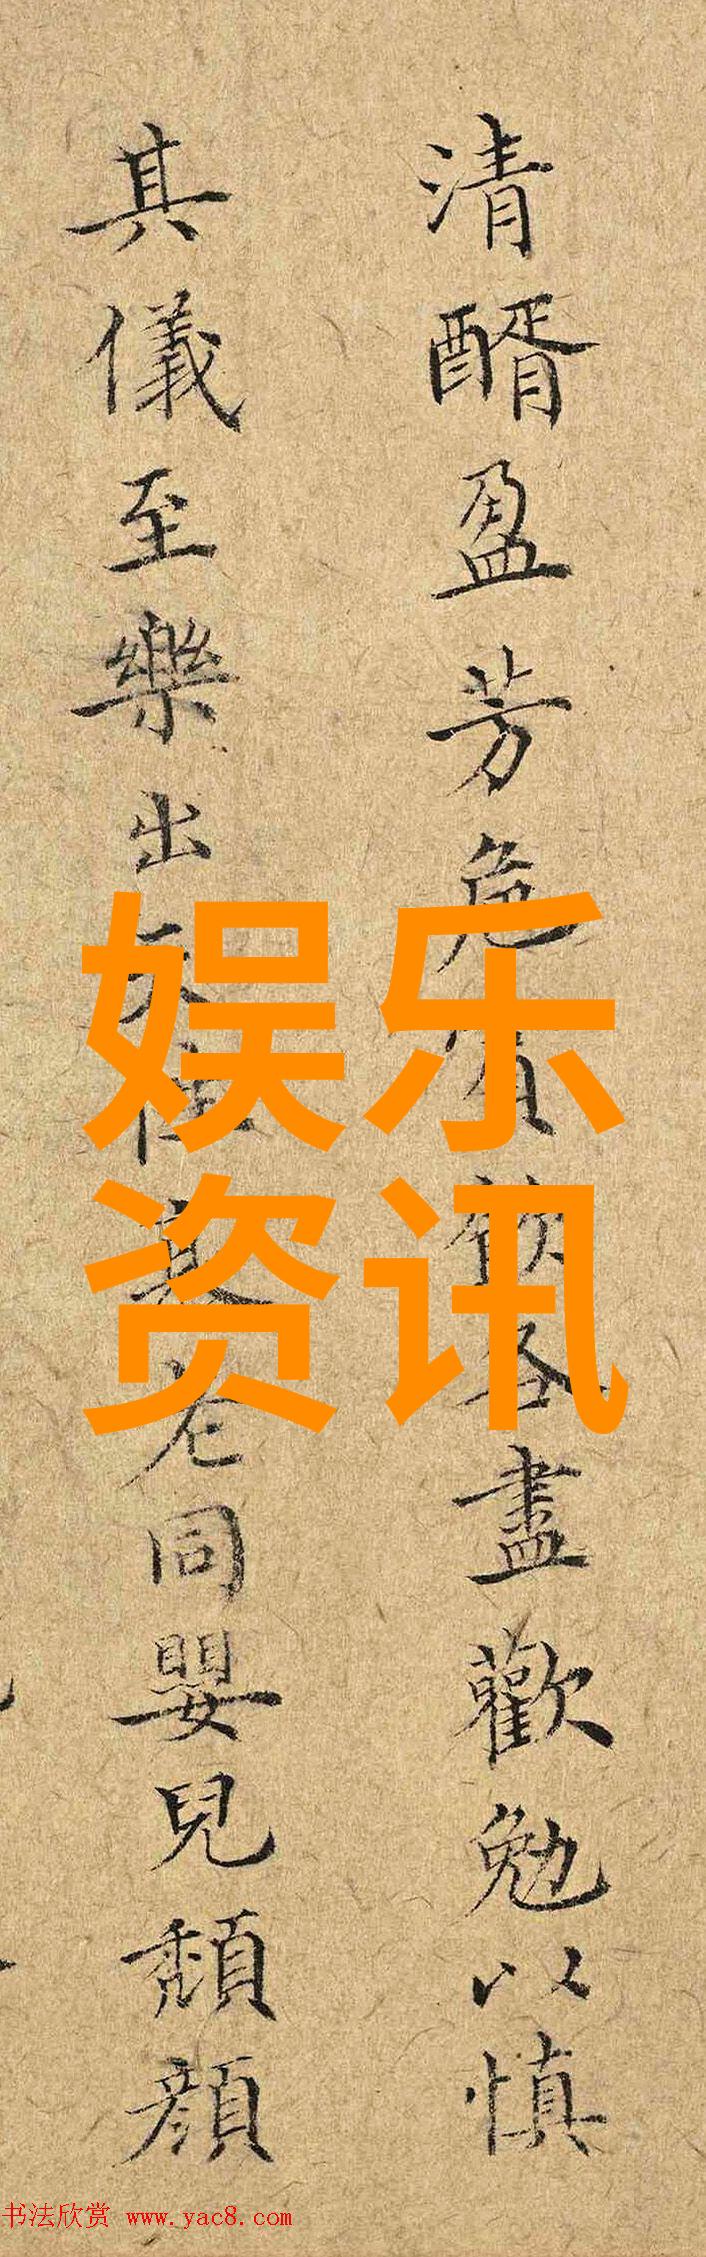 清醑盈芳卮
飲各盡歡勉以慎
其儀至樂出天性
老同嬰兒頽顔
娱乐
资讯
书法欣赏 www.yac8.com